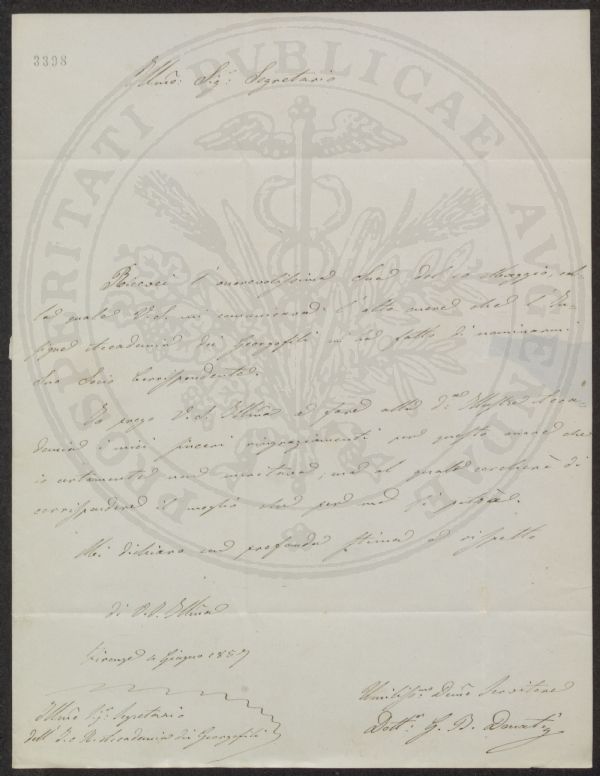 3398
Illmo: Sig: Segretario
Ricevei l'onorevolissima Sua del 10 Maggio, col-
la quale V.S. mi comunicava l'alto onore che l'In-
signe Accademia dei Georgofili mi ha fatto di nominarmi
Suo Socio Corrispondente.
Io prego V.S. Illma a fare alla da Illustre Acca-
demia i miei sinceri ringraziamenti per questo onore che
io certamente non meritava, ma al quale cercherò di
corrispondere il meglio che per me si potrà.
Mi dichiaro con profonda stima e rispetto
di V.S. Illma
Firenze 4 Giugno 1857
Umiliss:mo Devmo Servitore
Dott:r G. B. Donati
Illmo Sig: Segretario
dell' I. e R. Accademia dei Georgofili
PROSPERITATI PUBLICAE AUGENDAE